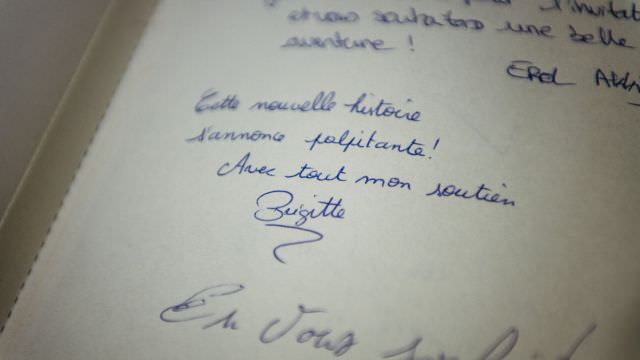 l'invitat
souhaitons une belle
aventure !
EROL
Cette nouvelle histoire
s'annonce palpitante!
Avec tout mon soutien
Brigitte
En vous